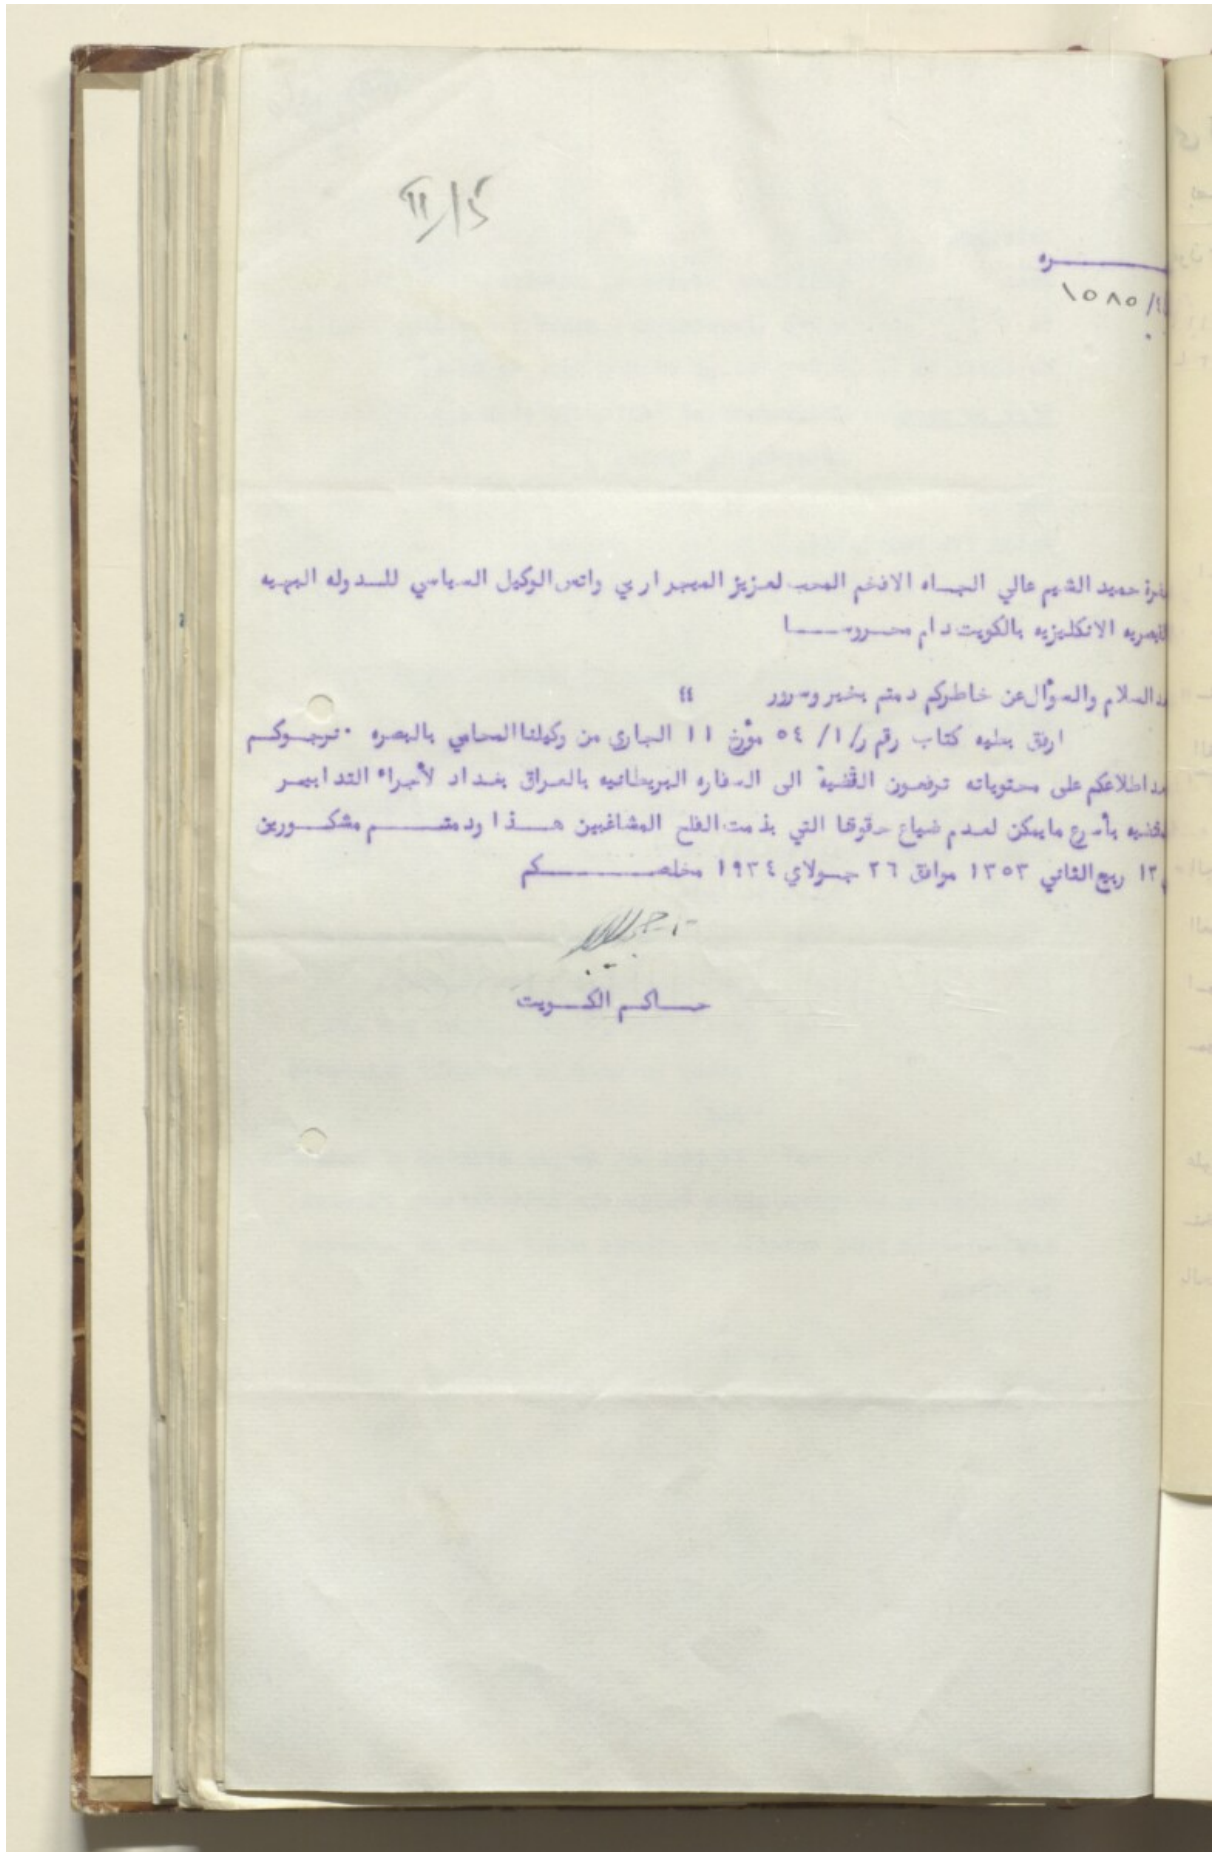 5/II
ـره
١٥٨٥/
حميد الشيم عالي الجـاه الافخم المحب لعزيز الميجر اربي واتس الوكيل السياسي للـدوله البهيه
الانكليزيه بالكويت دام محـروسـا
السلام والسؤال عن خاطركم دمتم بخير وسرور
ارفق بطيه كتاب رقم ر/١/ ٥٤ مؤرخ ١١ الجاري من وكيلنا المحامي بالبصره ٠ نرجـوكـم
اطلاعكم على محتوياته ترفعون القضية الى السفاره البريطانيه بالعراق بغـداد لأجراء التدابيـر
بأسرع مايمكن لعدم ضياع حقوقنا التي بذمت الفلح المشاغبين هـذا ودمتـم مشكـورين
١٣ ربيع الثاني ١٣٥٣ موافق ٢٦ جـولاي ١٩٣٤ مخلصـكم
حـاكـم الكـويت